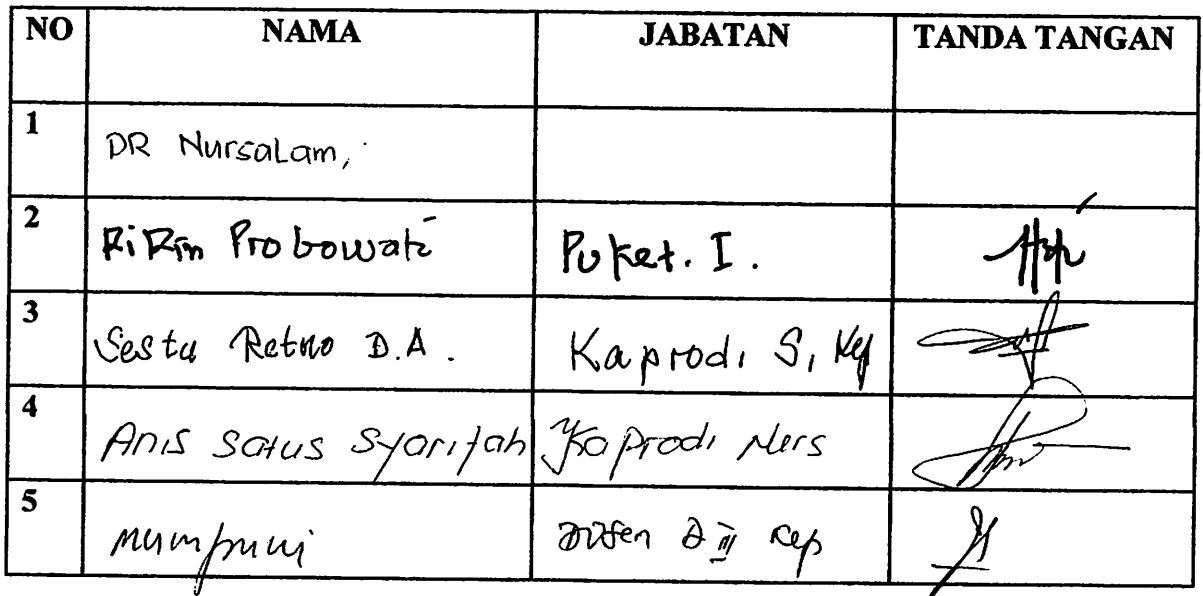 NO NAMA JABATAN TANDA TANGAN
1 DR Nursalam,
2 Ririn Probowati Puket. I.
3 Sestu Retno D.A. Kaprodi S1 Kep
4 Anis Satus Syarifah Kaprodi Ners
5 Mumpuni Dosen D III Kep